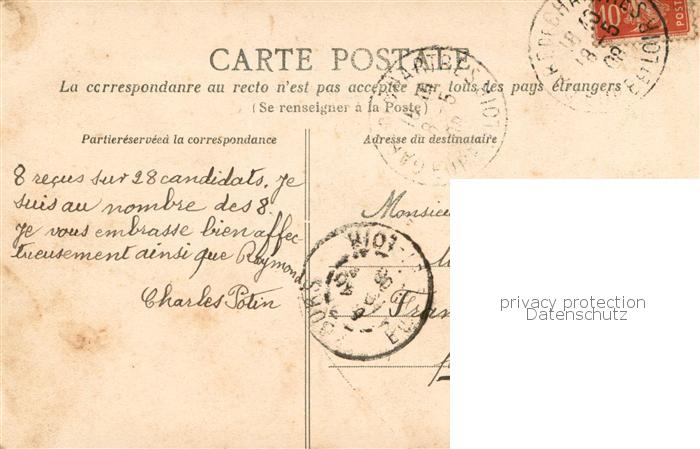 10
POST
CARTE POSTALE
La ccrrespondanre au recto n'est pas acceptée par tous les pays étrangers
(Se renseigner à la Poste)
Partieréservéeà la correspondance
Adresse du destinataire
8 reçus sur 28 candidats. Je
suis au nombre des 8.
Je vous embrasse bien affec-
tueusement ainsi que Raymond
Charles Potin
Monsieu
Fran
privacy protection
Datenschutz